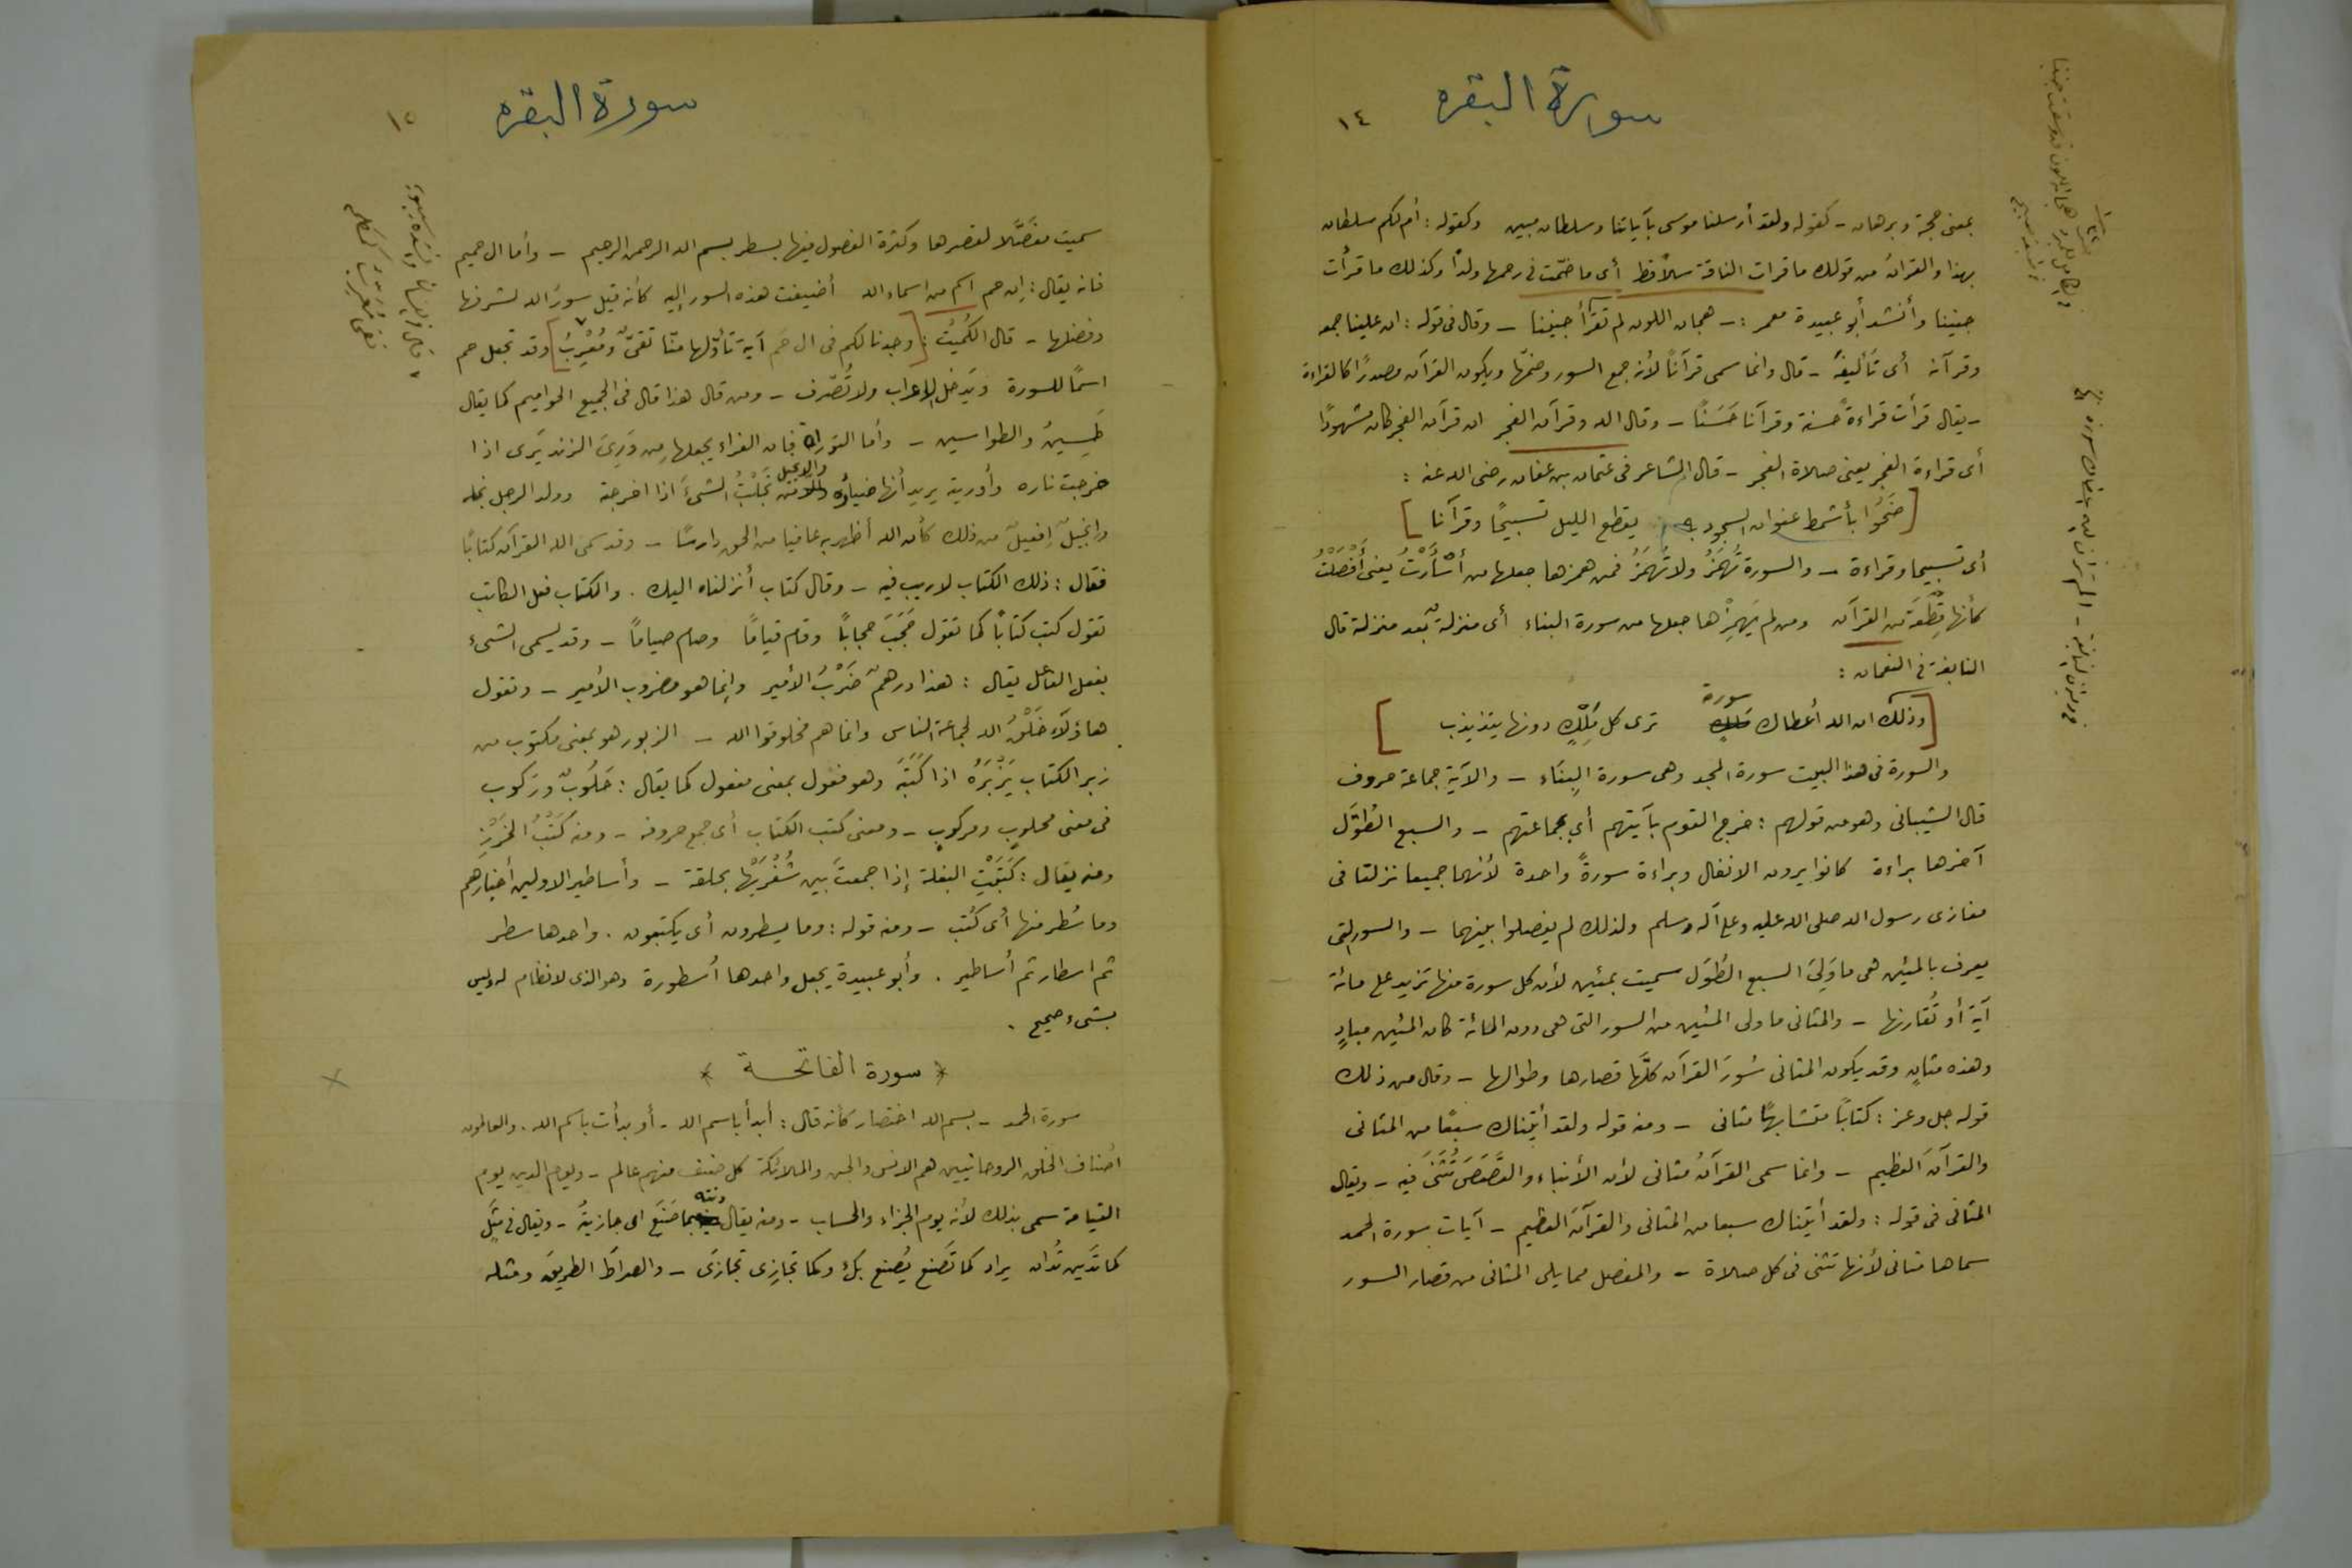 سورة البقره
١٤
بمعنى حجة وبرهان - كقوله ولقد أرسلنا موسى بآياتنا وسلطان مبين وكقوله : أم لكم سلطان
بهذا والقرآنُ من قولك ما قرات الناقة سلاً قط أى ما ضمّت فى رحمها ولدًا وكذلك ما قرأت
جنينا وأنشد أبو عبيدة معمر :- هجان اللون لم تقرأ جنينا - وقال فى قوله : ان علينا جمعه
وقرآنه أى تأليفَه - قال وانما سمى قرآناً لأنه جمع السور وضمّها ويكون القرآن مصدرًا كالقراءة
- يقال قرأت قراءةً حسنة وقرآنا حَسَنًا - وقال الله وقرآن الفجر ان قرآن الفجر كان مشهودًا
أى قراءة الفجر يعنى صلاة الفجر - قال الشاعر فى عثمان بن عفان رضى الله عنه :
[ ضَحُّوا بأشمط عنوان السجود به يقطع الليل تسبيحًا وقرآنا ]
أى تسبيحا وقراءة - والسورة تُهمَزُ ولا تُهمَزُ فمن همزها جعلها من أسْأَرْتُ يعنى أفْضَلْتُ
كأنها قِطْعَة من القرآن ومن لم يَهمِزْها جعلها من سورة البناء أى منزلةٌ بعد منزلة قال
النابغة فى النعمان :
سورة
[ وذلك ان الله أعطاك ترى كل مَلِكٍ دونها يتذبذب ]
والسورة فى هذا البيت سورة المجد وهى سورة البِنَاء - والآية جماعة حروف
قال الشيبانى وهو من قولهم : خرج القوم بآيتهم أي بجماعتهم - والسبع الطُوَل
آخرها براءة كانوا يرون الانفال وبراءة سورةً واحدة لأنهما جميعا نزلتا فى
مغازى رسول الله صلى الله عليه وعلى آله وسلم ولذلك لم يفصلوا بينهما - والسور التى
يعرف بالمئين هى ما وَلِىَ السبع الطُوَل سميت بمئين لأن كل سورة منها تزيد على مائة
آية أو تُقارنها - والمثانى ما ولى المئين من السور التى هى دون المائة كان المئين مبادٍ
وهذه مثانٍ وقد يكون المثانى سُورَ القرآن كلَّها قصارها وطوالها - وقال من ذلك
قوله جل وعز : كتابًا متشابهًا مثانى - ومنه قوله ولقد أتيناك سبعًا من المثانى
والقرآنَ العظيم - وانما سمى القرآنُ مثانى لأن الأنباء والقَصَصَ تُثَنَى فيه - ويقال
المثانى فى قوله : ولقد أتيناك سبعا من المثانى والقرآن العظيم - آيات سورة الحمد
سماها مثانى لأنها تثنى فى كل صلاة - والمفصل مما يلى المثانى من قصار السور
سورة البقره
١٥
سميت مفصَّلا لقصرها وكثرة الفصول فيها بسطر بسم الله الرحمن الرحيم - وأما ال حميم
فانه يقال : ان حم اسم من اسماء الله أضيفت هذه السور إليه كأنه قيل سورُ الله لشرفها
وفضلها - قال الكُمَيْت : [ وجدنا لكم فى ال حَم آية تأوّلها منّا تقىّ ومُعْرِبُ ] وقد تجعل حم
اسمًا للسورة ويَدخل الاعراب ولا تُصْرف - ومن قال هذا قال فى الجميع الحواميم كما يقال
طَسِينُ والطواسين - وأما التوراة فان الفراء يجعلها من وَرِىَ الزند يَرى اذا
خرجت ناره وأوريته يريد أنها ضياء والانجيل من نَجَلْتُ الشىءَ اذا اخرجته وولد الرجل نجله
وانجيلٌ إفعيلٌ من ذلك كأن الله أظهر به عافيا من الحق دارسًا - وقد سمى الله القرآن كتابًا
فقال : ذلك الكتاب لاريب فيه - وقال كتاب أنزلناه اليك . والكتاب فعل الكاتب
تقول كتب كتابًا كما تقول حَجَبَ حجابًا وقام قيامًا وصام صيامًا - وقد يسمى الشىء
بفعل الفاعل يقال : هذا درهمٌ ضَرْبُ الأمير وإنما هو مضروب الأمير - ونقول
هاؤلاء خَلْقُ الله لجماعة الناس وانما هم مخلوقوا الله - الزبور هو بمعنى مكتوب من
زبر الكتاب يَزْبُرُهُ اذا كَتَبَهُ وهو فعول بمعنى مفعول كما يقال : حَلُوبٌ ورَكوب
فى معنى محلوبٍ ومركوبٍ - ومعنى كتب الكتاب أى جمع حروفه - ومنه كَتْبُ الخَرَزِ
ومنه يقال : كتَبْتُ البغلة إذا جمعتَ بين شُفْرَيْها بحلقة - وأساطير الاولين أخبارهم
وما سُطر منها أى كُتب - ومنه قوله : وما يسطرون أى يكتبون . واحدها سطر
ثم اسطار ثم أساطير . وأبو عبيدة يجعل واحدها أسطورة وهو الذى لانظام له وليس
بشىء صحيح .
* سورة الفاتحة *
سورة الحمد - بسم الله اختصار كأنه قال : أبدأ باسم الله - أو بدأت باسم الله . والعالمون
اصناف الخلق الروحانيين هم الانس والجن والملائكة كل صنف منهم عالم - ويوم الدين يوم
القيامة سمى بذلك لأنه يوم الجزاء والحساب - ومنه يقال دنته بما صَنَع اى جازيتُه - ويقال فى مثلٍ
كما تَدِين تُدان يراد كما تَصْنع يُصْنع بك وكما تُجازِى تُجازَى - والصراطَ الطريقَ ومثله